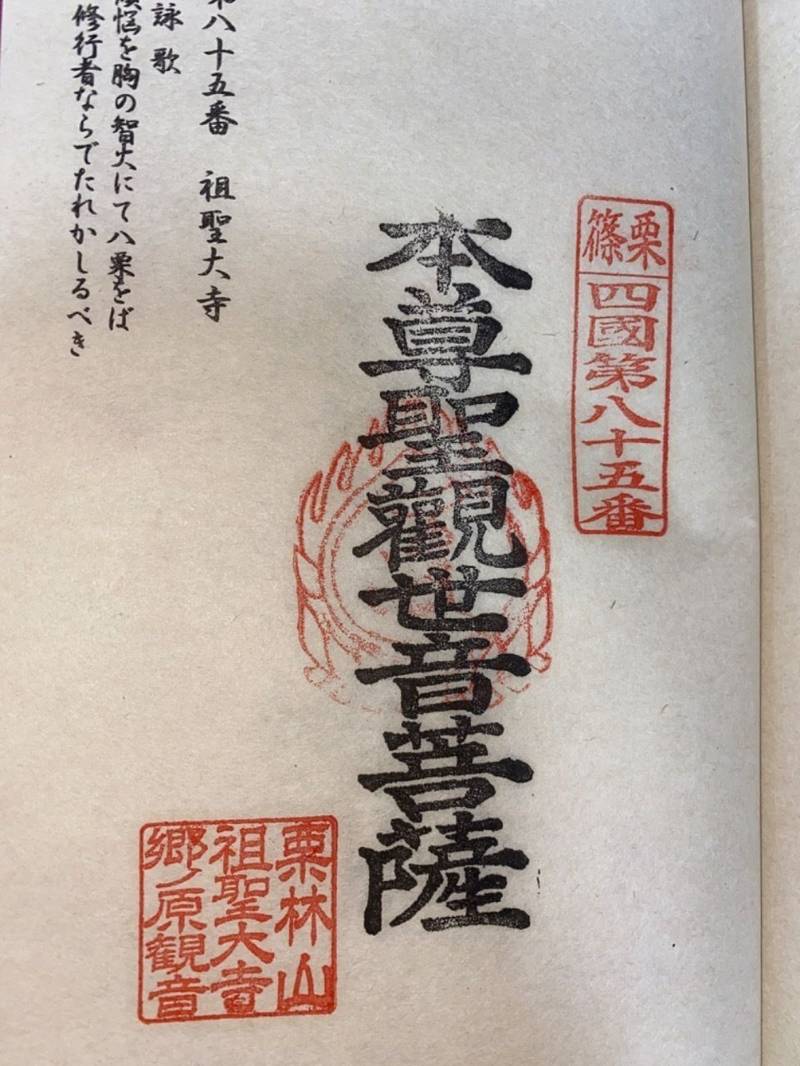 篠栗
四國第八十五番
本尊聖觀世音菩薩
栗林山
祖聖大寺
郷ノ原観音
八十五番 祖聖大寺
詠歌
を胸の智火にて八栗をば
修行者ならでたれかしるべき